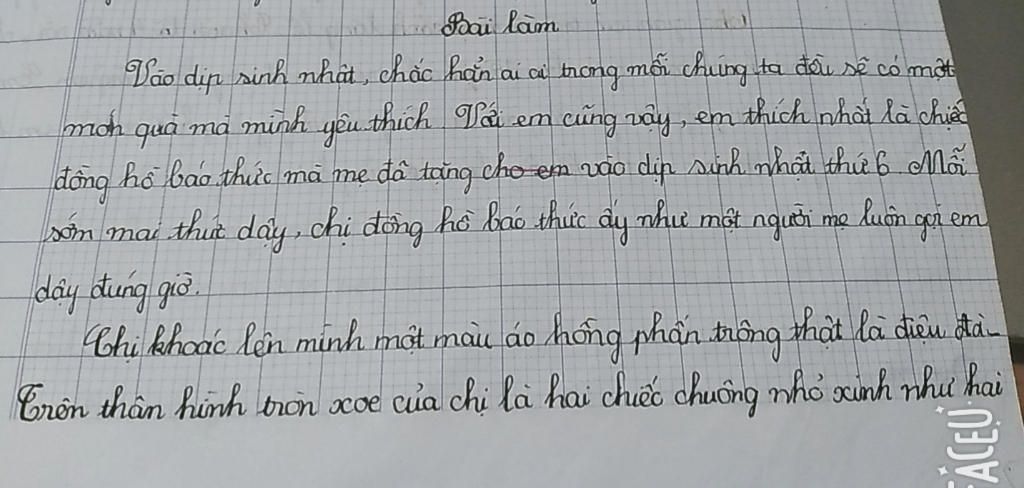 Bài làm
Vào dịp sinh nhật, chắc hẳn ai ai trong mỗi chúng ta đều sẽ có một
món quà mà mình yêu thích Với em cũng vậy, em thích nhất là chiếc
đồng hồ báo thức mà mẹ đã tặng cho em vào dịp sinh nhật thứ 6. Mỗi
sớm mai thức dậy, chị đồng hồ báo thức ấy như một người mẹ luôn gọi em
dậy đúng giờ.
Chị khoác lên mình một màu áo hồng phấn trông thật là điệu đà.
Trên thân hình tròn xoe của chị là hai chiếc chuông nhỏ xinh như hai
FACEU